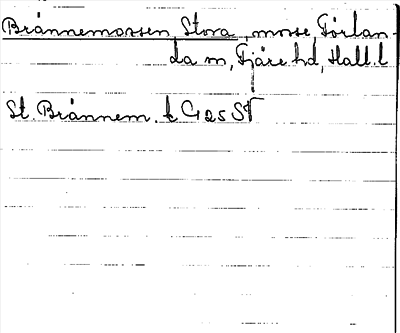 Brännemossen, Stora, mosse Förlan-
da sn, Fjäre hd, Hall. l
St. Brännem. k G 25 SV